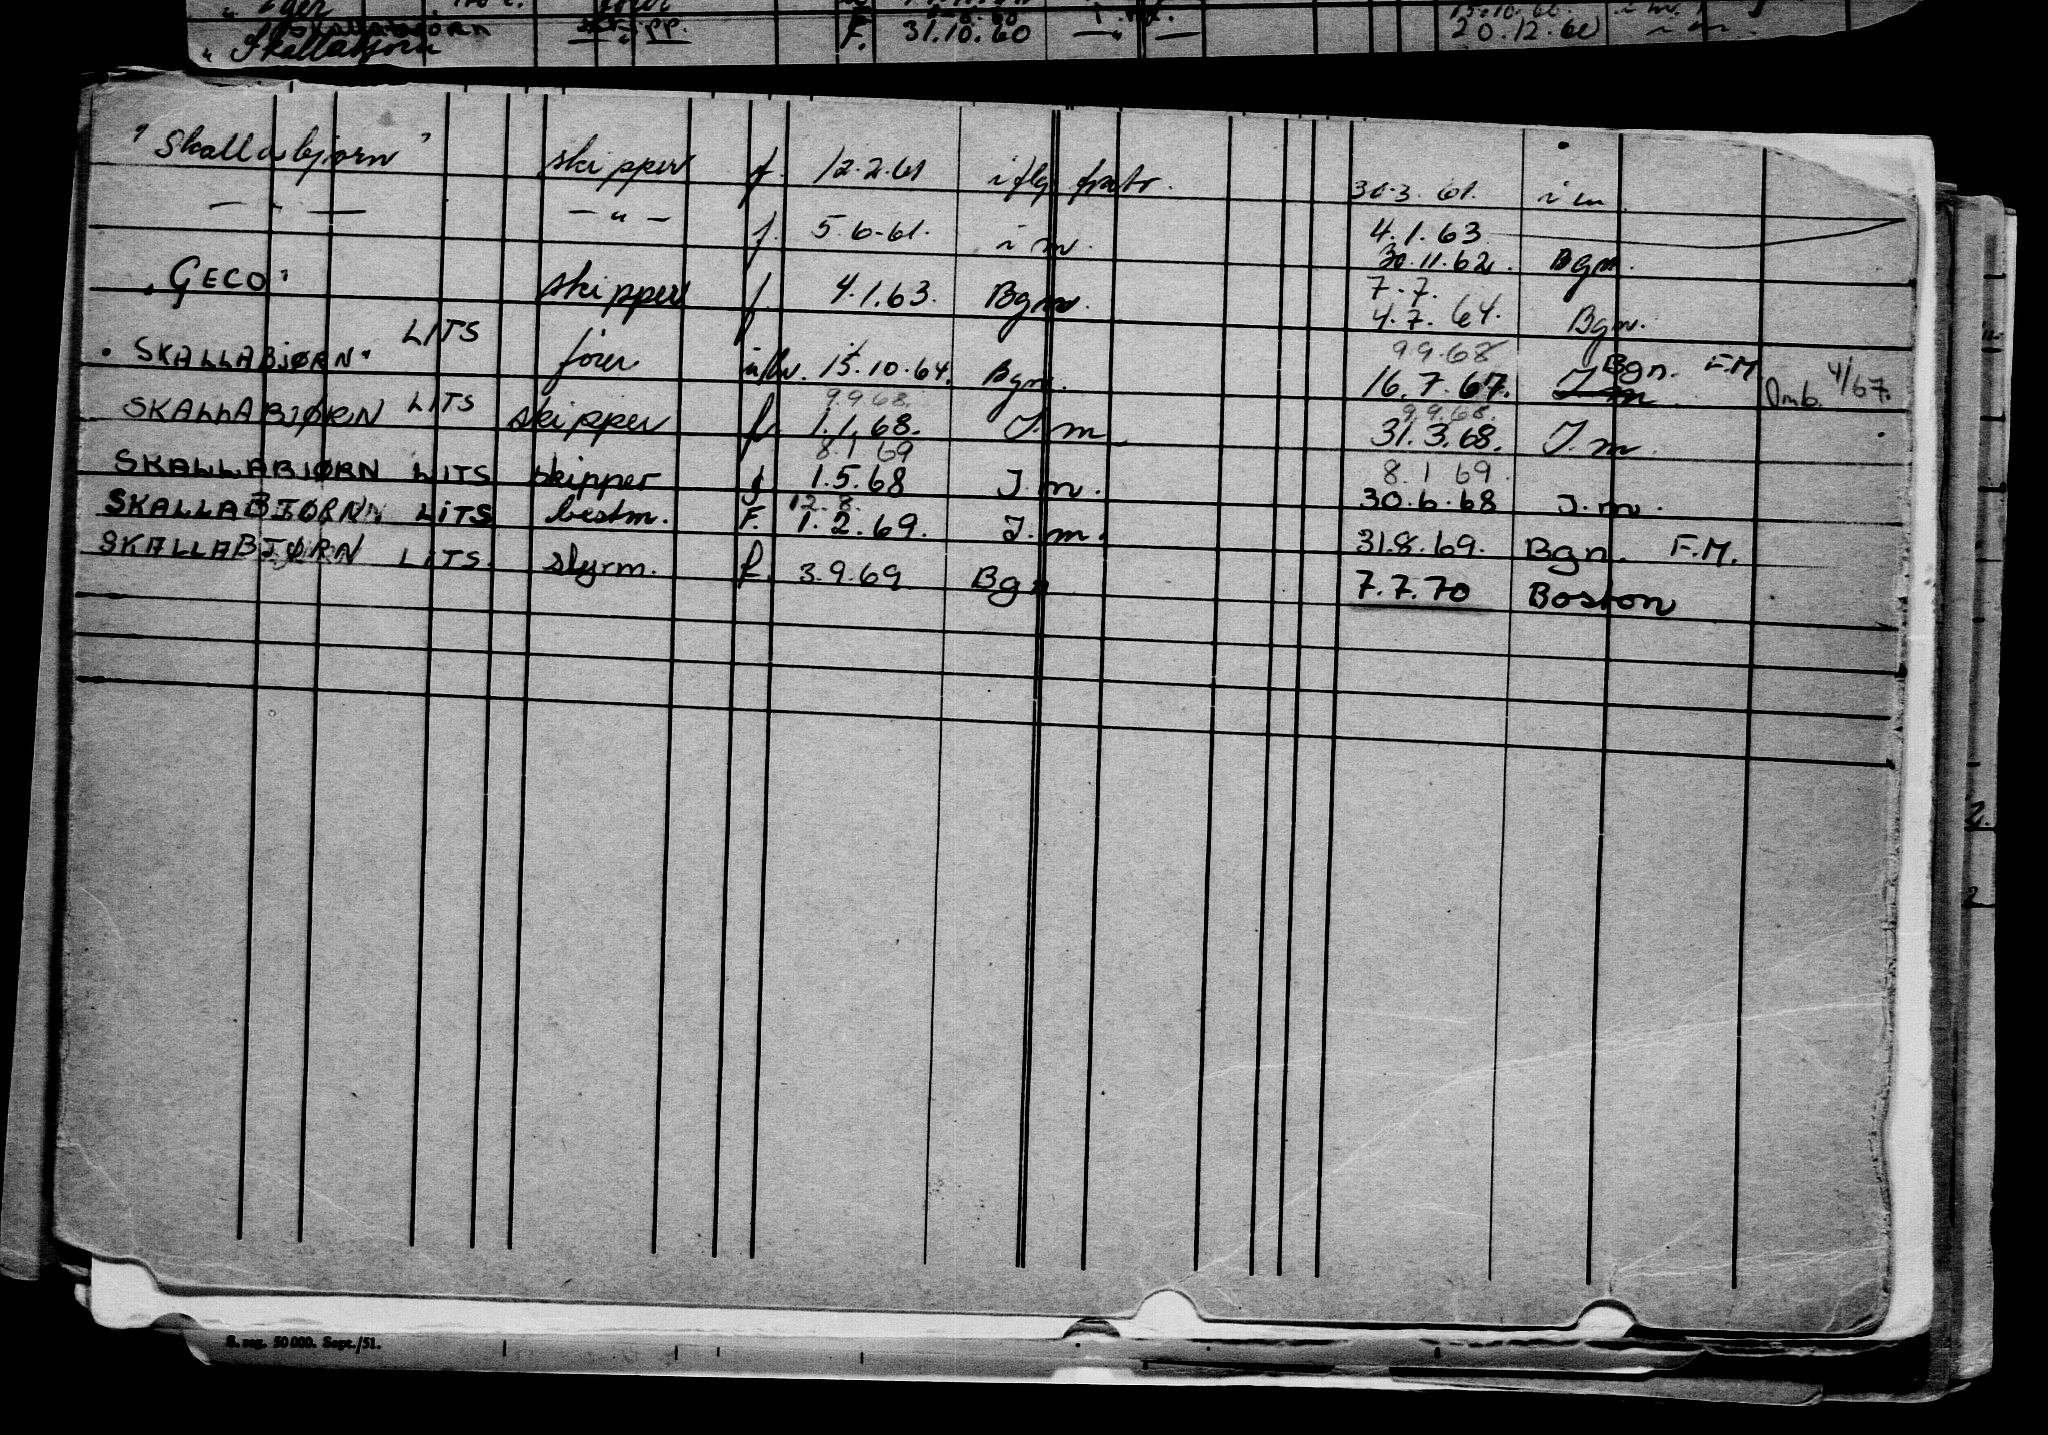 Skallabjørn 31.10.60 — " — 20.12.60 i m.
"Skallabjørn" skipper f. 12.2.61 iflg fratr. 30.3.61. i m.
— " — — " — f. 5.6.61. i m. 4.1.63
30.11.62. Bgn.
"GECO" skipper f 4.1.63. Bgn. 7.7.
4.7.64. Bgn.
9.9.68
"SKALLABJØRN" LITS fører 15.10.64. Bgn. 16.7.67. I m Bgn. F.M. Omb. 4/67.
9.9.68. 9.9.68.
SKALLABJØRN LITS skipper f. 1.1.68. I. m 31.3.68. I. m.
8.1 69 8.1 69.
SKALLABJØRN LITS skipper f 1.5.68 I. m. 30.6.68 I. m.
12.8.
SKALLABJØRN LITS bestm. F. 1.2.69. I. m. 31.8.69. Bgn. F.M.
SKALLABJØRN LITS. styrm. f. 3.9.69 Bgn 7.7.70 Boston
S. reg. 50 000. Sept./51.